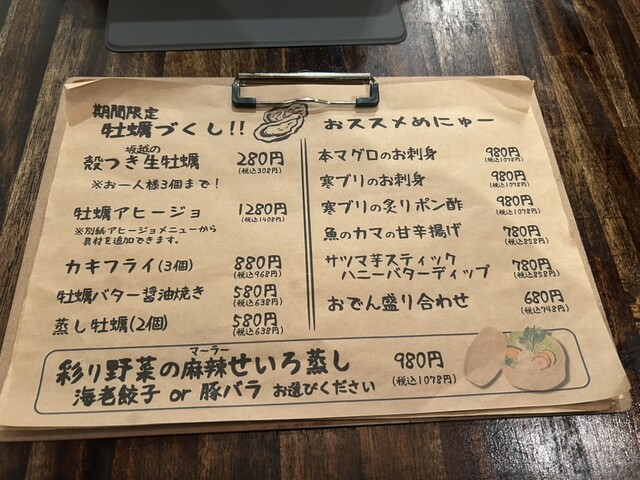 期間限定
牡蠣づくし!!
坂越の
殻つき生牡蠣 280円
(税込308円)
※お一人様3個まで!
牡蠣アヒージョ 1280円
(税込1408円)
※別紙アヒージョメニューから
具材を追加できます。
カキフライ(3個) 880円
(税込968円)
牡蠣バター醤油焼き 580円
(税込638円)
蒸し牡蠣(2個) 580円
(税込638円)
おススメめにゅー
本マグロのお刺身 980円
(税込1078円)
寒ブリのお刺身 980円
(税込1078円)
寒ブリの炙りポン酢 980円
(税込1078円)
魚のカマの甘辛揚げ 780円
(税込858円)
サツマ芋スティック
ハニーバターディップ 780円
(税込858円)
おでん盛り合わせ 680円
(税込748円)
マーラー
彩り野菜の麻辣せいろ蒸し 980円
(税込1078円)
海老餃子 or 豚バラ お選びください